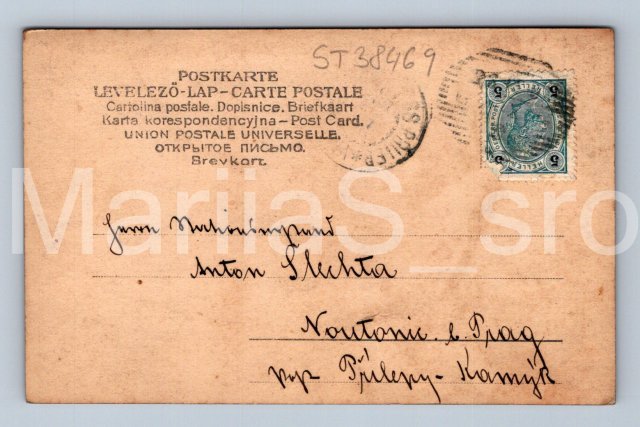 ST38469
POSTKARTE
LEVELEZŐ-LAP-CARTE POSTALE
Cartolina postale. Dopisnice. Briefkaart
Karta korespondencyjna-Post Card.
UNION POSTALE UNIVERSELLE.
ОТКРЫТОЕ ПИСЬМО.
Brevkort.
5 5
HELLER HELLER
5 5
MarijaS_sro
Herrn
Anton Slechta
Noutonic b. Prag
pop Přílepy-Kamýk